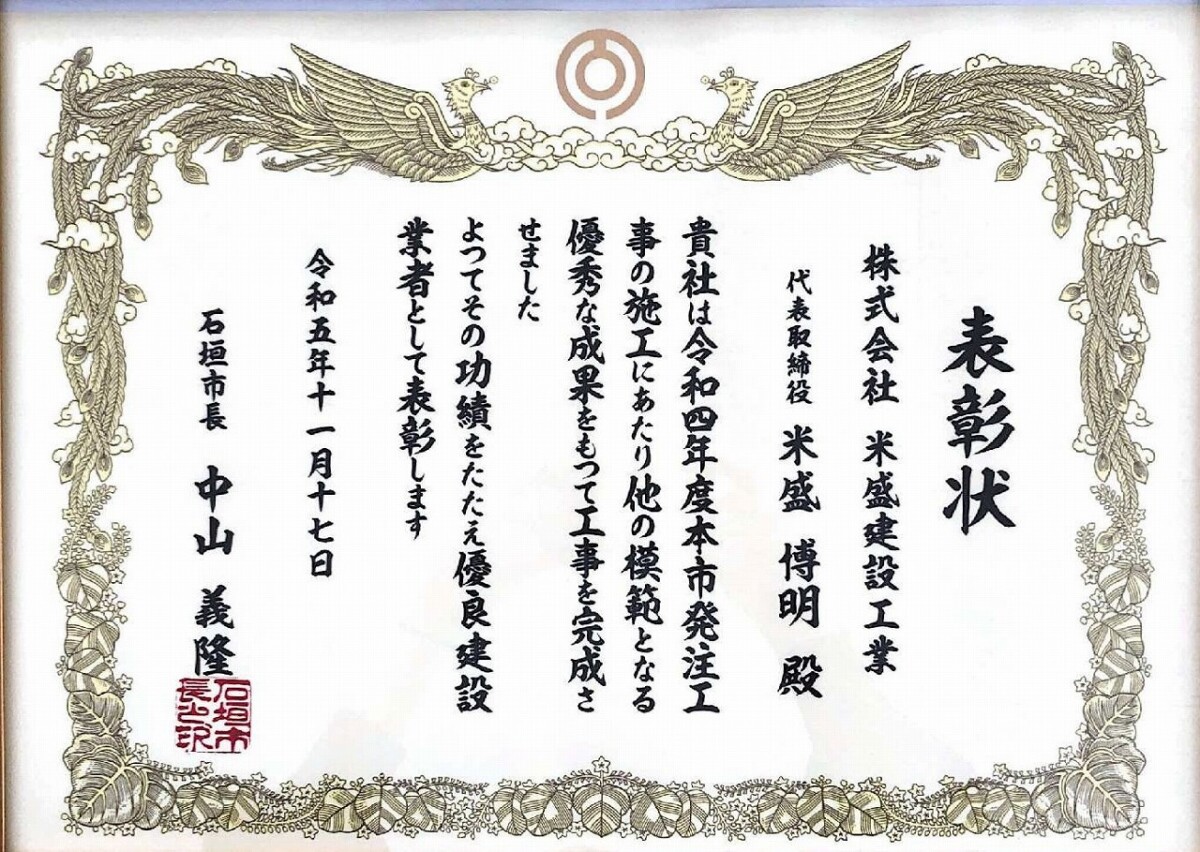 表彰状
株式会社 米盛建設工業
代表取締役 米盛 博明 殿
貴社は令和四年度本市発注工
事の施工にあたり他の模範となる
優秀な成果をもつて工事を完成さ
せました
よつてその功績をたたえ優良建設
業者として表彰します
令和五年十一月十七日
石垣市長 中山 義隆
石垣市
長之印